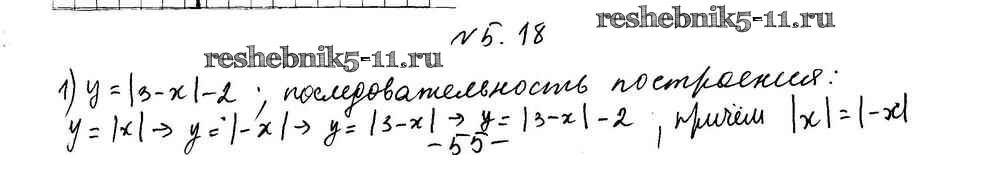 reshebnik5-11.ru
№ 5.18
reshebnik5-11.ru
1) y = |3-x|-2 ; последовательность построения:
y = |x| → y = |-x| → y = |3-x| → y = |3-x| - 2 , причём |x| = |-x|
- 55 -